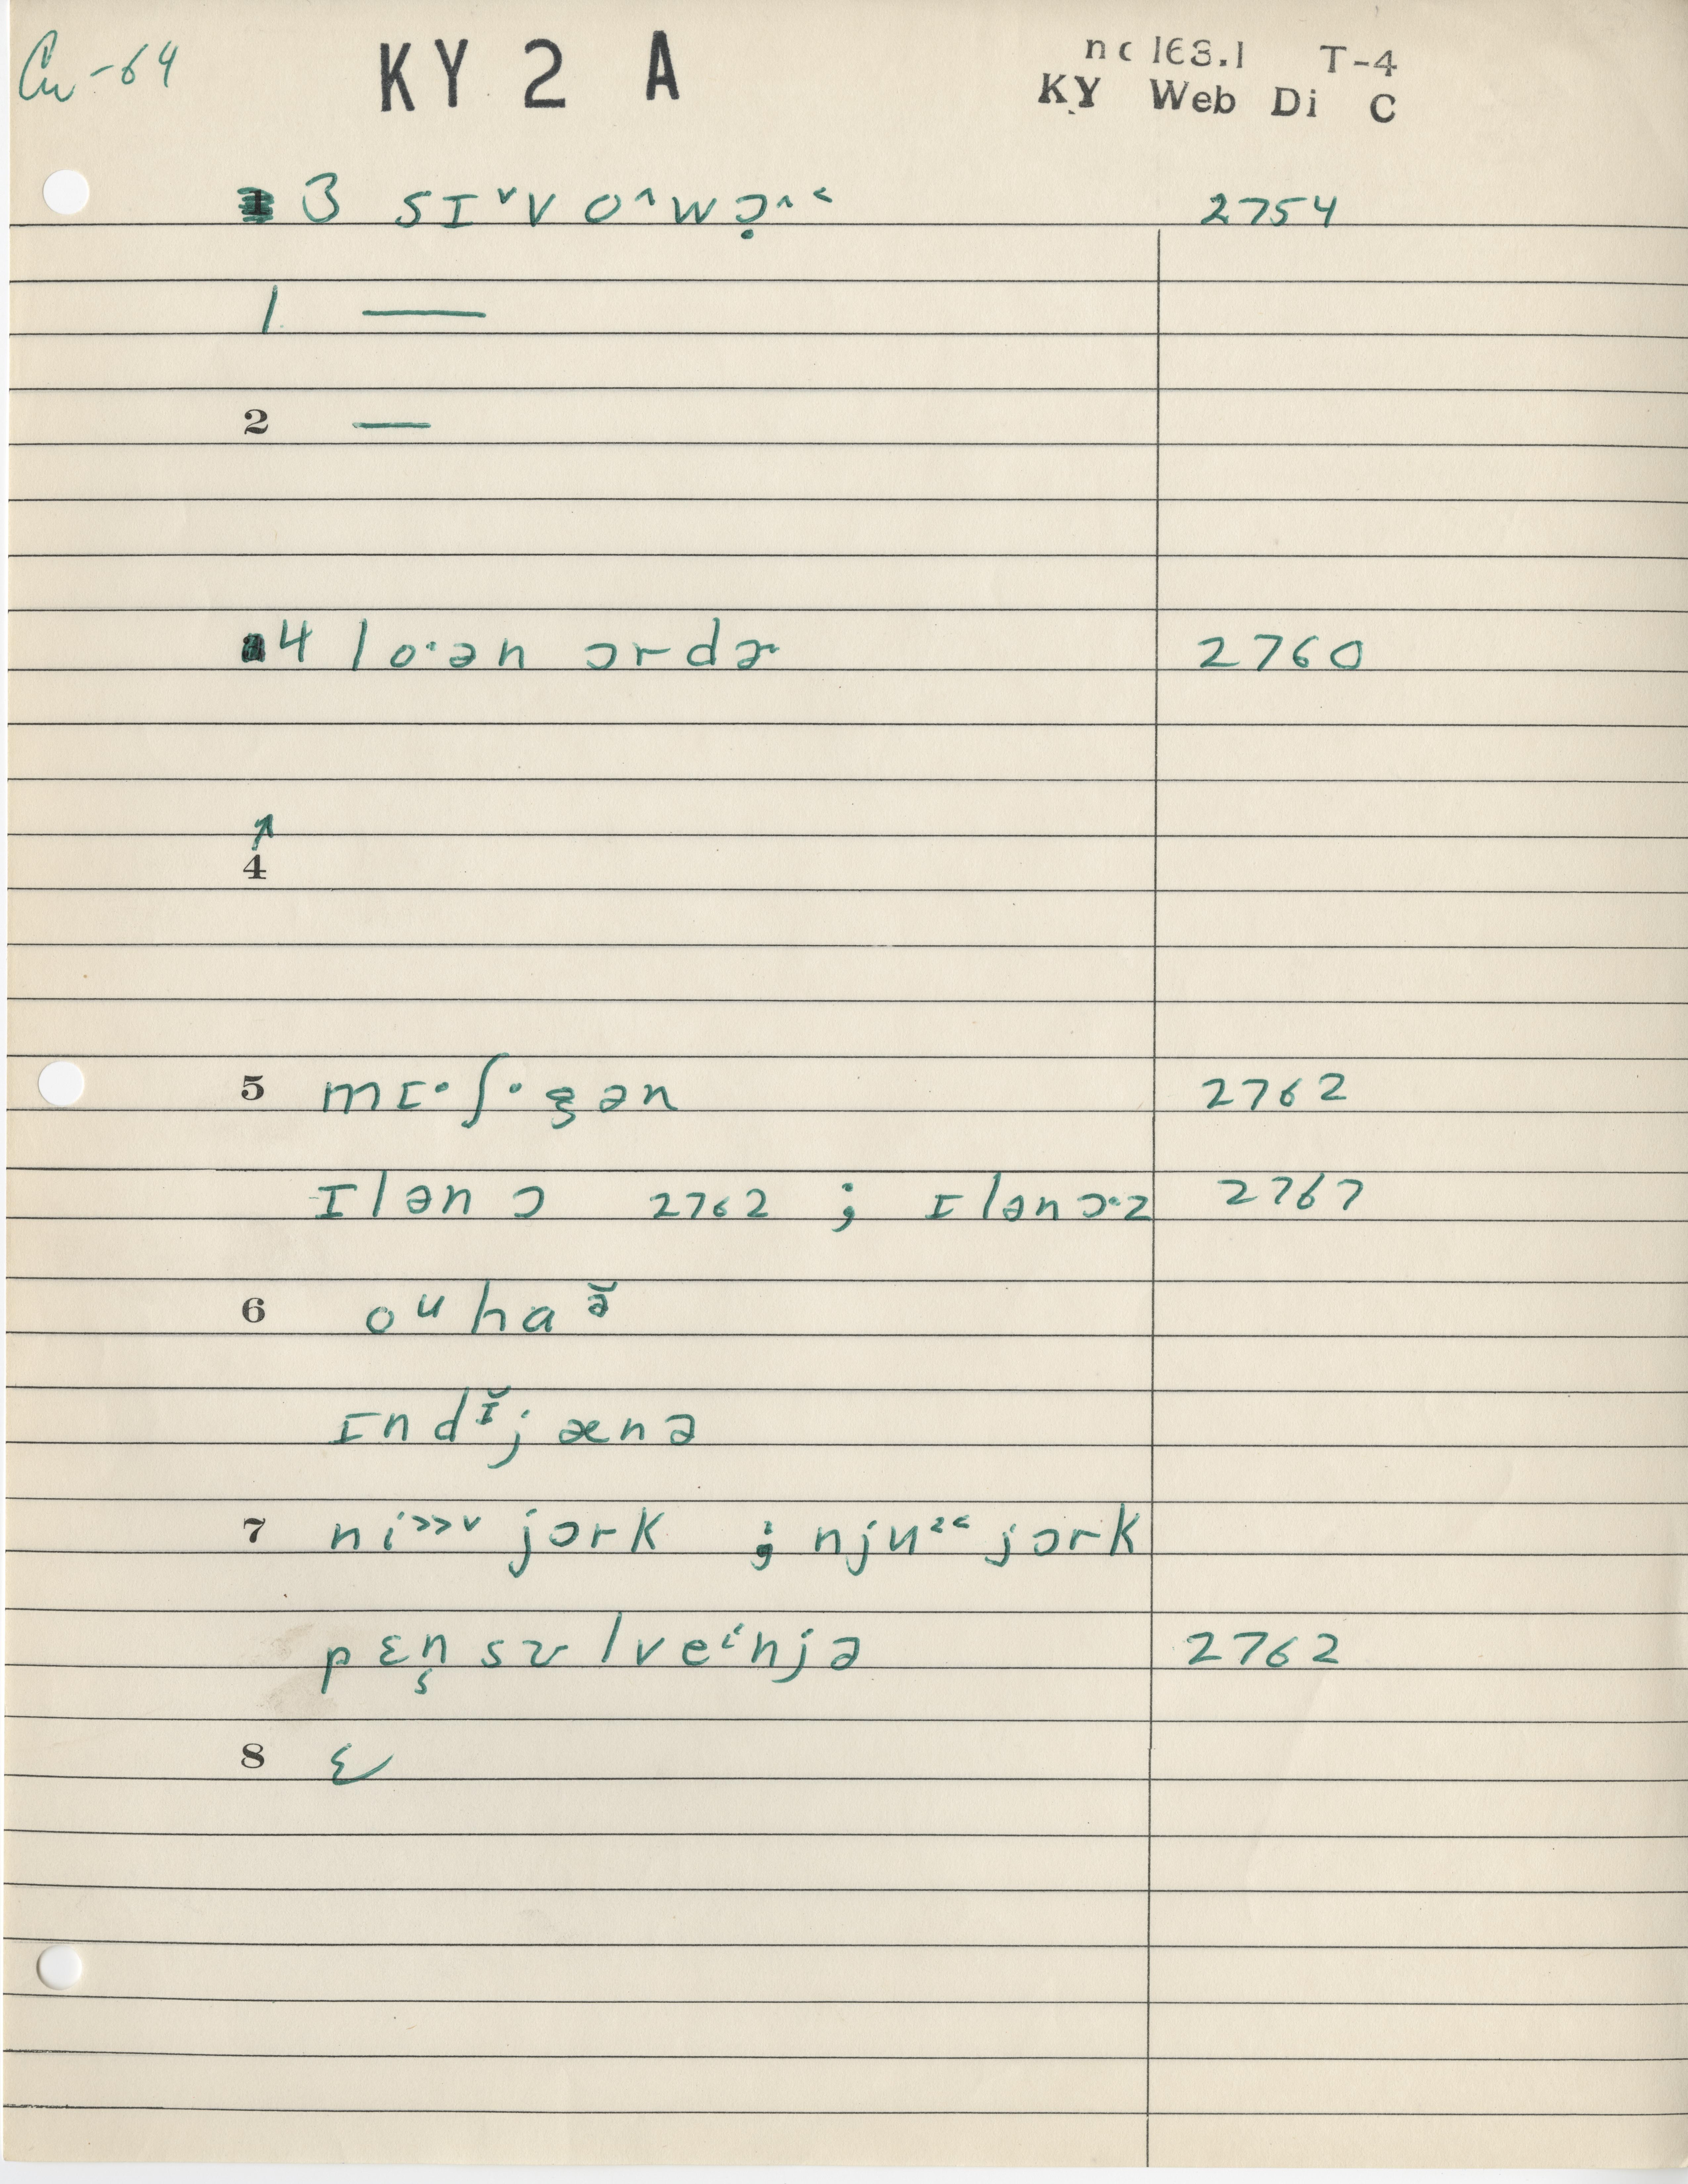 Cu-64 KY 2 A nc 163.1 T-4
KY Web Di C
3 sɪ˅v o^wɔ̣^˂ 2754
1 —
2 —
4 lo·ən ɔrdɚ 2760
↗
4
5 mɪ·ʃ·gən 2762
ɪlənɔ 2762 ; ɪlənɔ·z 2767
6 oᵘhaə̆
ɪndɪ̆jænə
7 ni˃˃˅ jɔrk ; nju˂˂ jɔrk
pɛn sɪlveⁱnjə 2762
8 ɛ